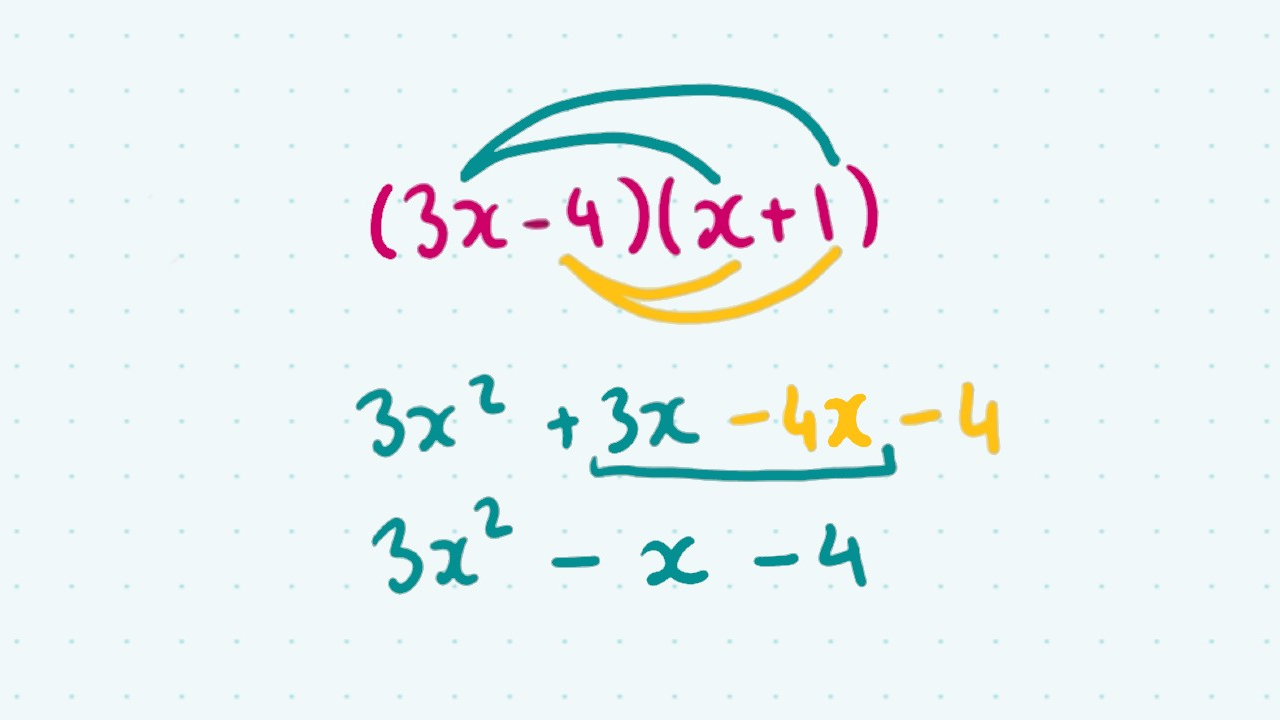 (3x-4)(x+1)
3x² +3x -4x -4
3x² - x -4